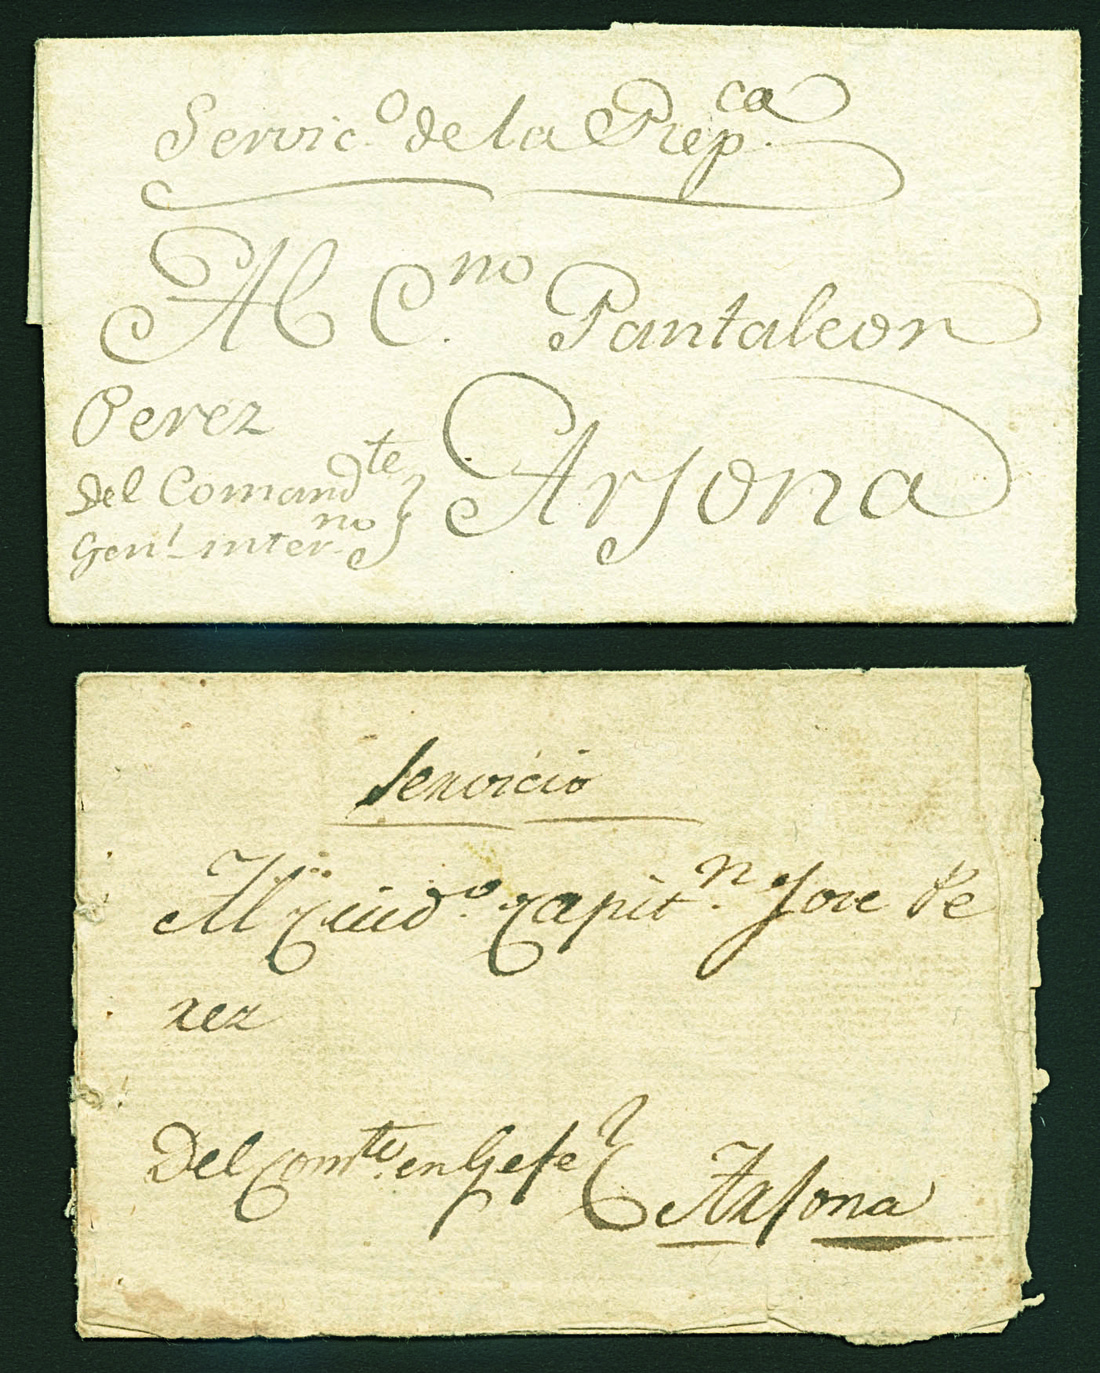 Servic.º de la Rep.ca
Al C.no Pantaleon
Perez
Del Comandte
Genl. interno
Arjona
Servicio
Al Ciudº. Capit.n Jose Pe
rez
Del Comte. en Gefe
Arjona